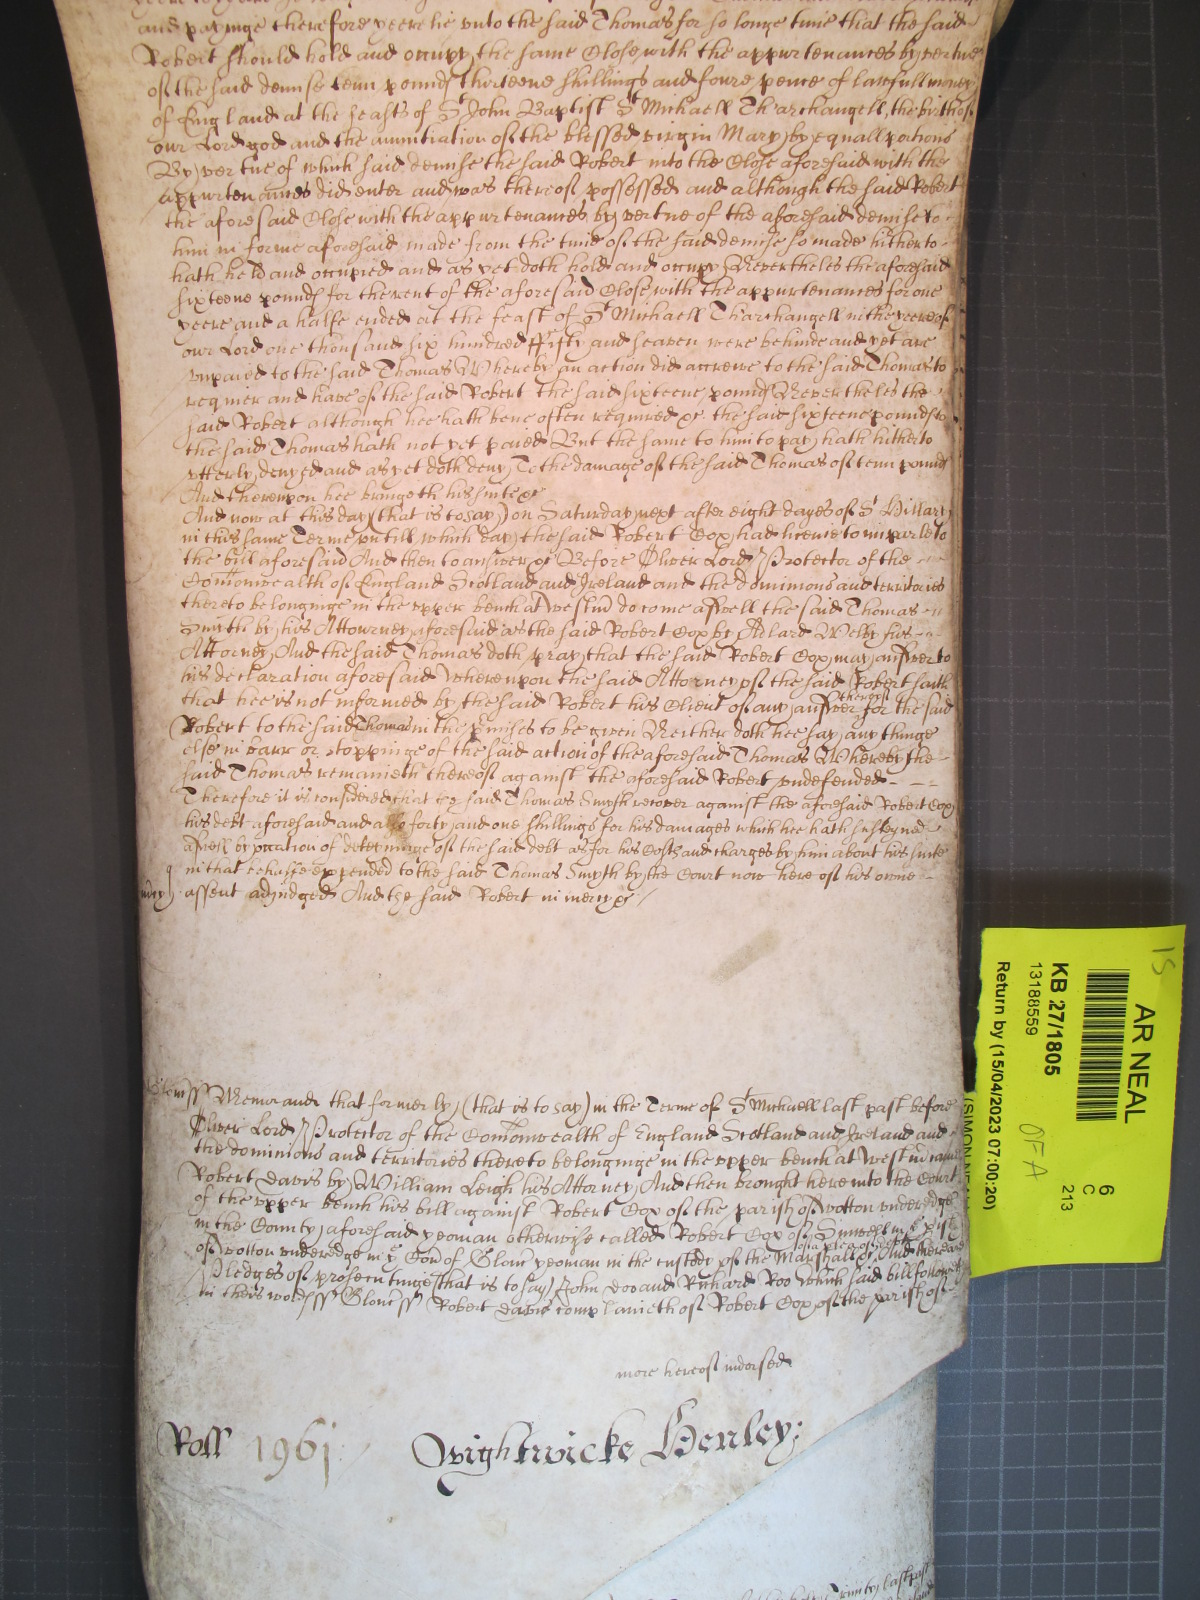 and payinge therefore yeerelie unto the said Thomas for so longe time that the said
Robert should hold and occupy the same Close with the appurtenances by vertue
of the said demise tenn pounds thirteene shillings and foure pence of lawfull money
of England at the feasts of St John Baptist St Michaell Th'archangell, the birth of
our Lord god and the annuntiation of the blessed virgin Mary by equall portions
By vertue of which said demise the said Robert into the Close aforesaid with the
appurtenances did enter and was thereof possessed and although the said Robert
the aforesaid Close with the appurtenances by vertue of the aforesaid demise to
him in forme aforesaid made from the time of the said demise so made hitherto
hath held and occupied and as yet doth hold and occupy Neverthelesse the aforesaid
sixteene pounds for the rent of the aforesaid Close with the appurtenances for one
yeere and a halfe ended at the feast of St Michaell Th'archangell in the yeere of
our Lord one thousand six hundred ffifty and seaven were behinde and yet are
unpaied to the said Thomas Whereby an action did accrewe to the said Thomas to
require and have of the said Robert the said sixteene pounds Neverthelesse the
said Robert although hee hath bene often required &c. the said sixteene pounds to
the said Thomas hath not yet paied But the same to him to pay hath hitherto
utterly denyed and as yet doth deny To the damage of the said Thomas of tenn pounds
And thereupon hee bringeth his suite &c
And now at this day (that is to say) on Saturday next after eight dayes of St Hillary
in this same Terme untill which day the said Robert Cox had licence to imparle to
the bill aforesaid And then to answer &c Before Oliver Lord Protector of the
Comonwealth of England Scotland and Ireland and the dominions and territories
thereto belonginge in the upper bench at Westm do come aswell the said Thomas
Smyth by his Attourney aforesaid as the said Robert Cox by Adlard Welby his
Attorney And the said Thomas doth pray that the said Robert Cox may answer to
his declaration aforesaid Whereupon the said Attorney of the said Robert saith
that hee is not informed by the said Robert his Client of any answer thereof for the said
Robert to the said Thomas in the pmises to be given Neither doth hee say any thinge
else in barr or stoppinge of the said action of the aforesaid Thomas Whereby the
said Thomas remaineth thereof against the aforesaid Robert undefended
Therefore it is considered that the said Thomas Smyth recover against the aforesaid Robert Cox
his debt aforesaid and also forty and one shillings for his damages which hee hath susteyned
aswell by occation of deteininge of the said debt as for his Costs and charges by him about his suite
in that behalfe expended to the said Thomas Smyth by the Court now here of his owne
assent adjudged And the said Robert in mercy &c
Glouc ss Memorand that formerly (that is to say) in the Terme of St Michaell last past before
Oliver Lord Protector of the Comonwealth of England Scotland and Ireland and
the dominions and territories thereto belonginge in the upper bench at Westm came
Robert Davis by William Leigh his Attorney And then brought here into the Court
of the upper bench his bill against Robert Cox of the parish of Wotton underedge
in the County aforesaid yeoman otherwise called Robert Cox of Sinwell in ye pish
of Wotton underedge in ye Con of Glouc yeoman in the custody of the Marshall &c of a plea of debt And there are
Pledges of prosecutinge (that is to say) John Doo and Richard Roo Which said bill followeth
in theis words ss Glouc ss Robert Davis complaineth of Robert Cox of the parish of
more hereof indorsed
Roll 1961
Wightwicke Henley:
Trinity last past
15
AR NEAL
6
C
213
KB 27/1805
13188559
Return by (15/04/2023 07:00:20)
OFA